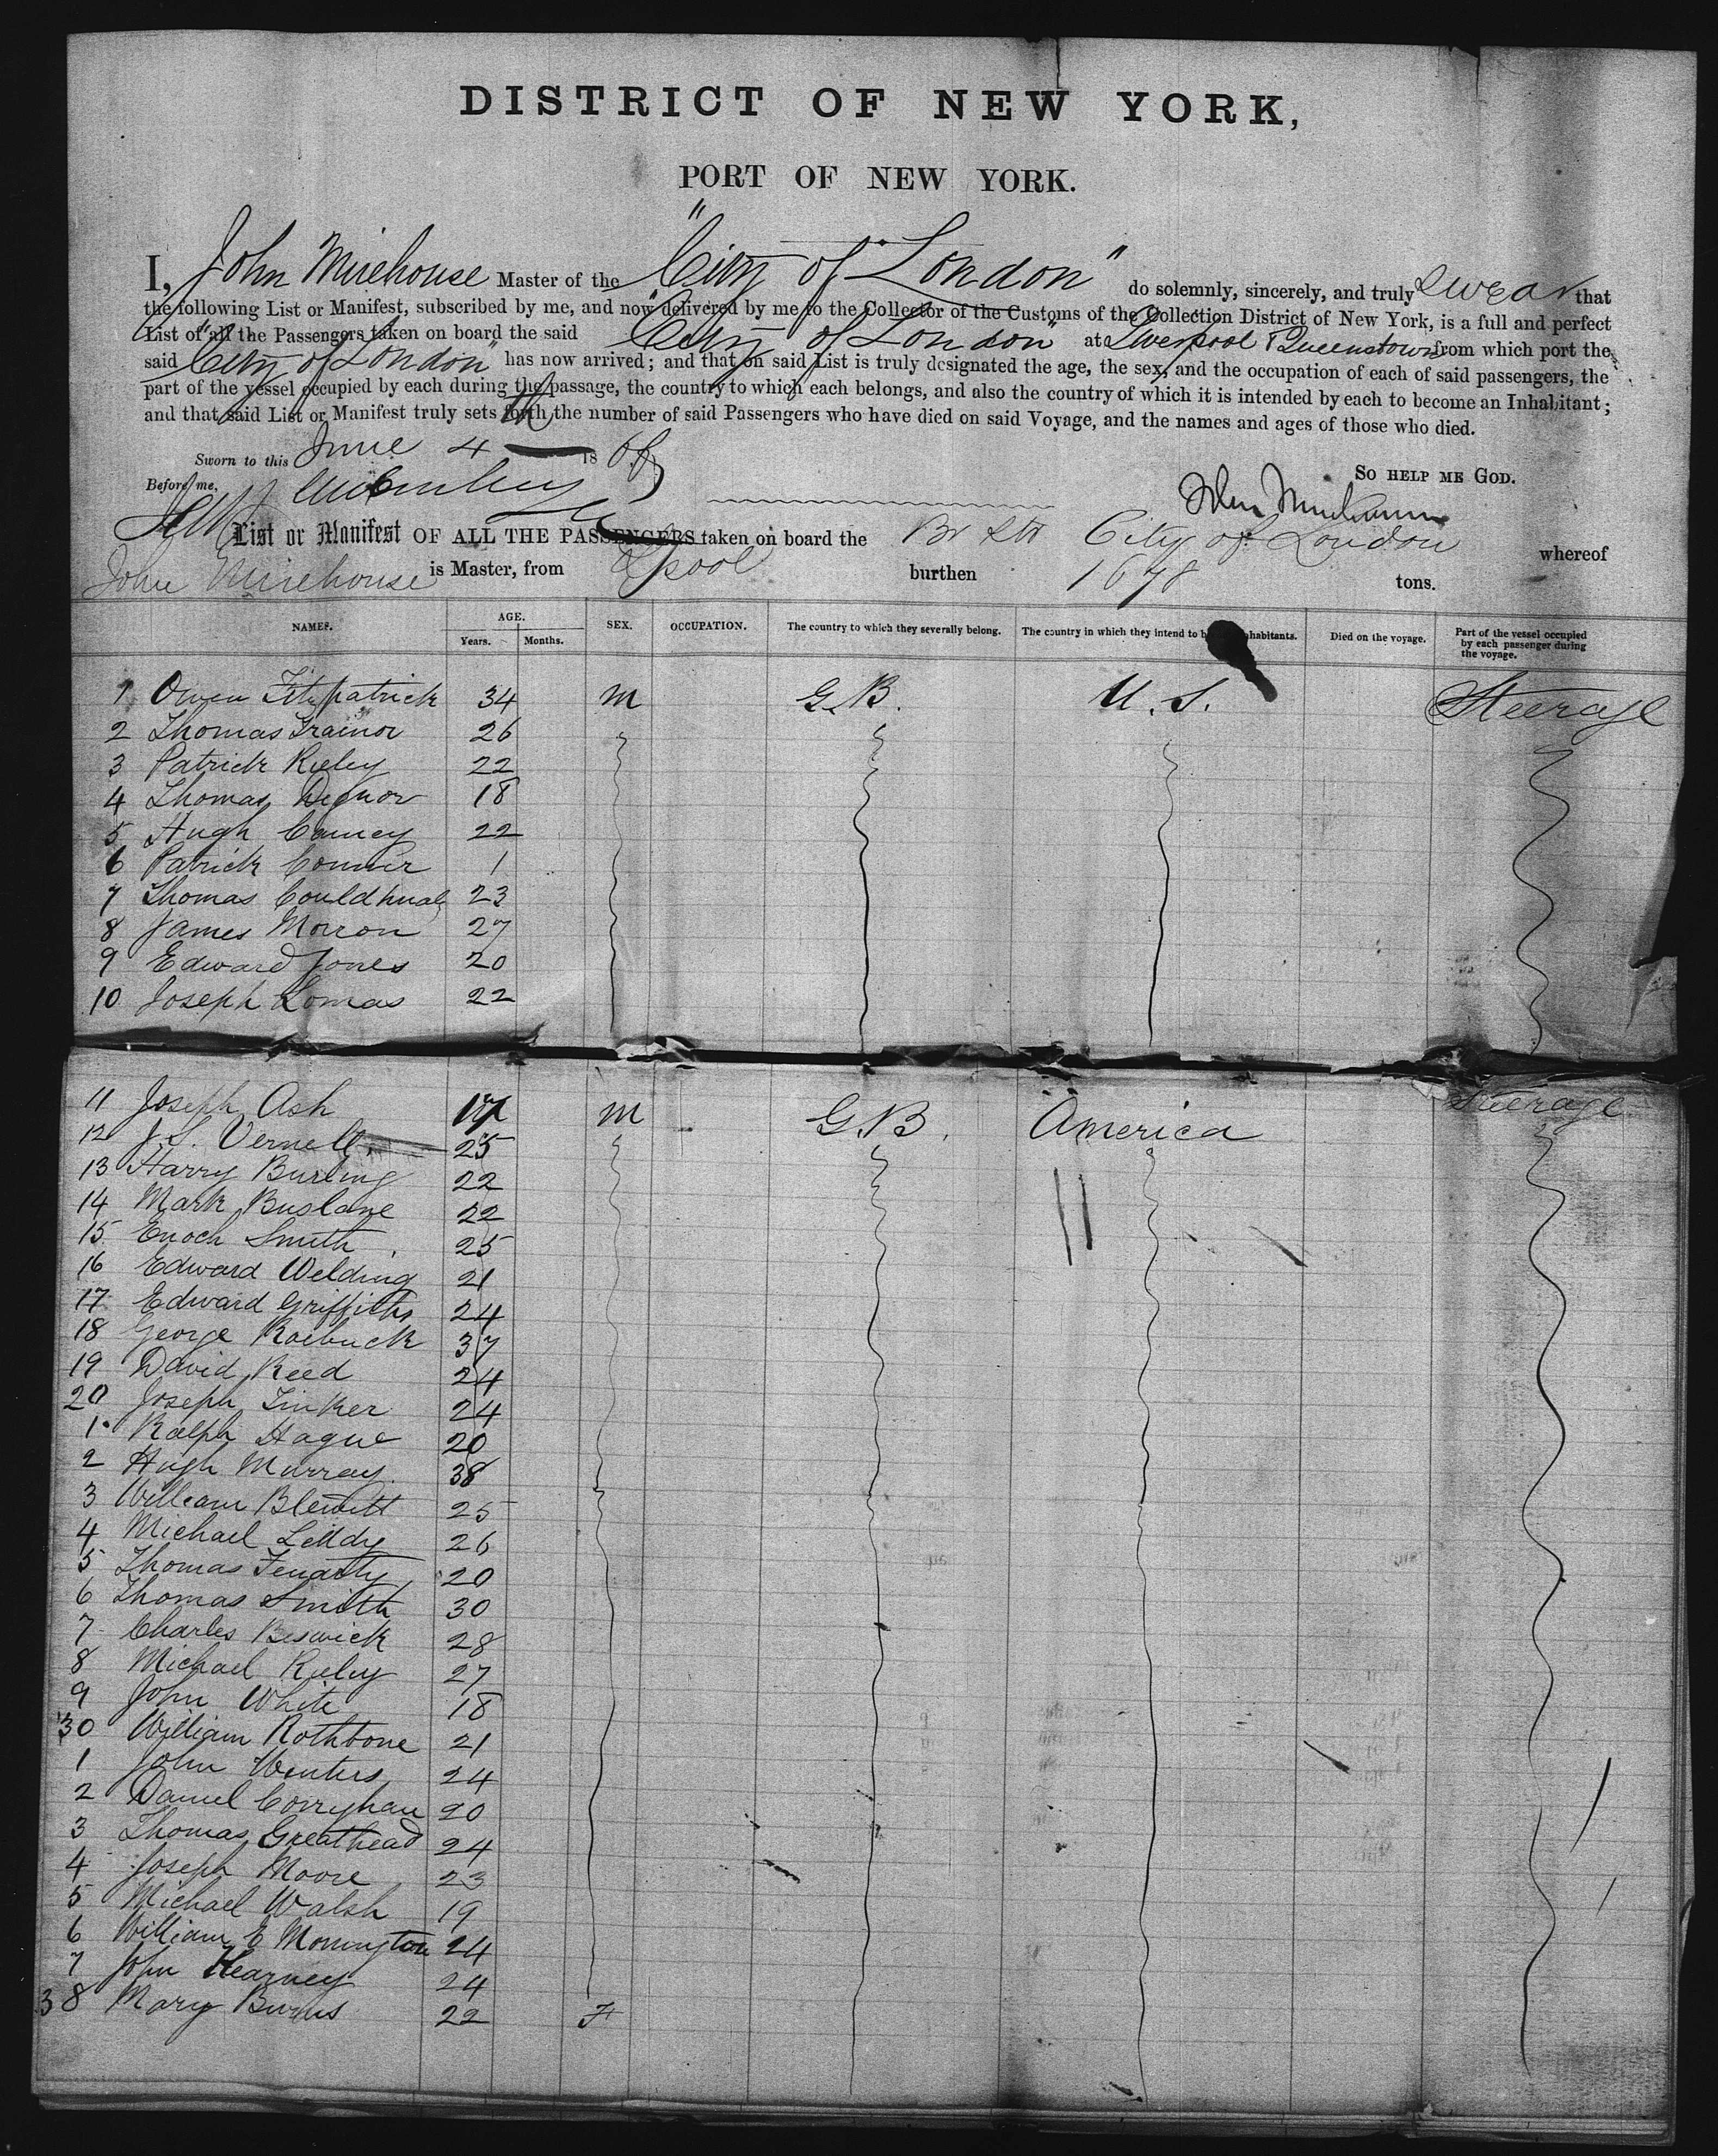 DISTRICT OF NEW YORK,
PORT OF NEW YORK.
I, John Mirehouse Master of the "City of London" do solemnly, sincerely, and truly swear that
the following List or Manifest, subscribed by me, and now delivered by me to the Collector of the Customs of the Collection District of New York, is a full and perfect
List of all the Passengers taken on board the said "City of London" at Liverpool & Queenstown from which port the
said "City of London" has now arrived; and that on said List is truly designated the age, the sex, and the occupation of each of said passengers, the
part of the vessel occupied by each during the passage, the country to which each belongs, and also the country of which it is intended by each to become an Inhabitant;
and that said List or Manifest truly sets forth the number of said Passengers who have died on said Voyage, and the names and ages of those who died.
Sworn to this June 4th 18
SO HELP ME GOD.
Before me,
John Mirehouse
List or Manifest OF ALL THE PASSENGERS taken on board the Br Str City of London whereof
John Mirehouse is Master, from Lpool burthen 1678 tons.
NAMES. AGE. Years. Months. SEX. OCCUPATION. The country to which they severally belong. The country in which they intend to b habitants. Died on the voyage. Part of the vessel occupied by each passenger during the voyage.
1 Owen Fitzpatrick 34 M G.B. U.S. Steerage
2 Thomas Trainor 26
3 Patrick Rieley 22
4 Thomas 18
5 Hugh 22
6 Patrick Connir 1
7 Thomas 23
8 James Morron 27
9 Edward Jones 20
10 Joseph Lomas 22
11 Joseph Ash 17 M G.B. America Steerage
12 J.S. Vernell 25
13 Harry Burling 22
14 Mark Buslane 22
15 Enoch Smith 25
16 Edward Welding 21
17 Edward Griffiths 24
18 George Roebuck 37
19 David Reed 24
20 Joseph Tinker 24
1 Ralph Hague 20
2 Hugh Murray 38
3 William Blewitt 25
4 Michael Leddy 26
5 Thomas 20
6 Thomas Smith 30
7 Charles Beswick 28
8 Michael Rieley 27
9 John White 18
30 William Rothbone 21
1 John Winters 24
2 Daniel Corryhan 20
3 Thomas Greathead 24
4 Joseph Moore 23
5 Michael Walsh 19
6 William E Monington 24
7 John Kearney 24
38 Mary Burns 22 F